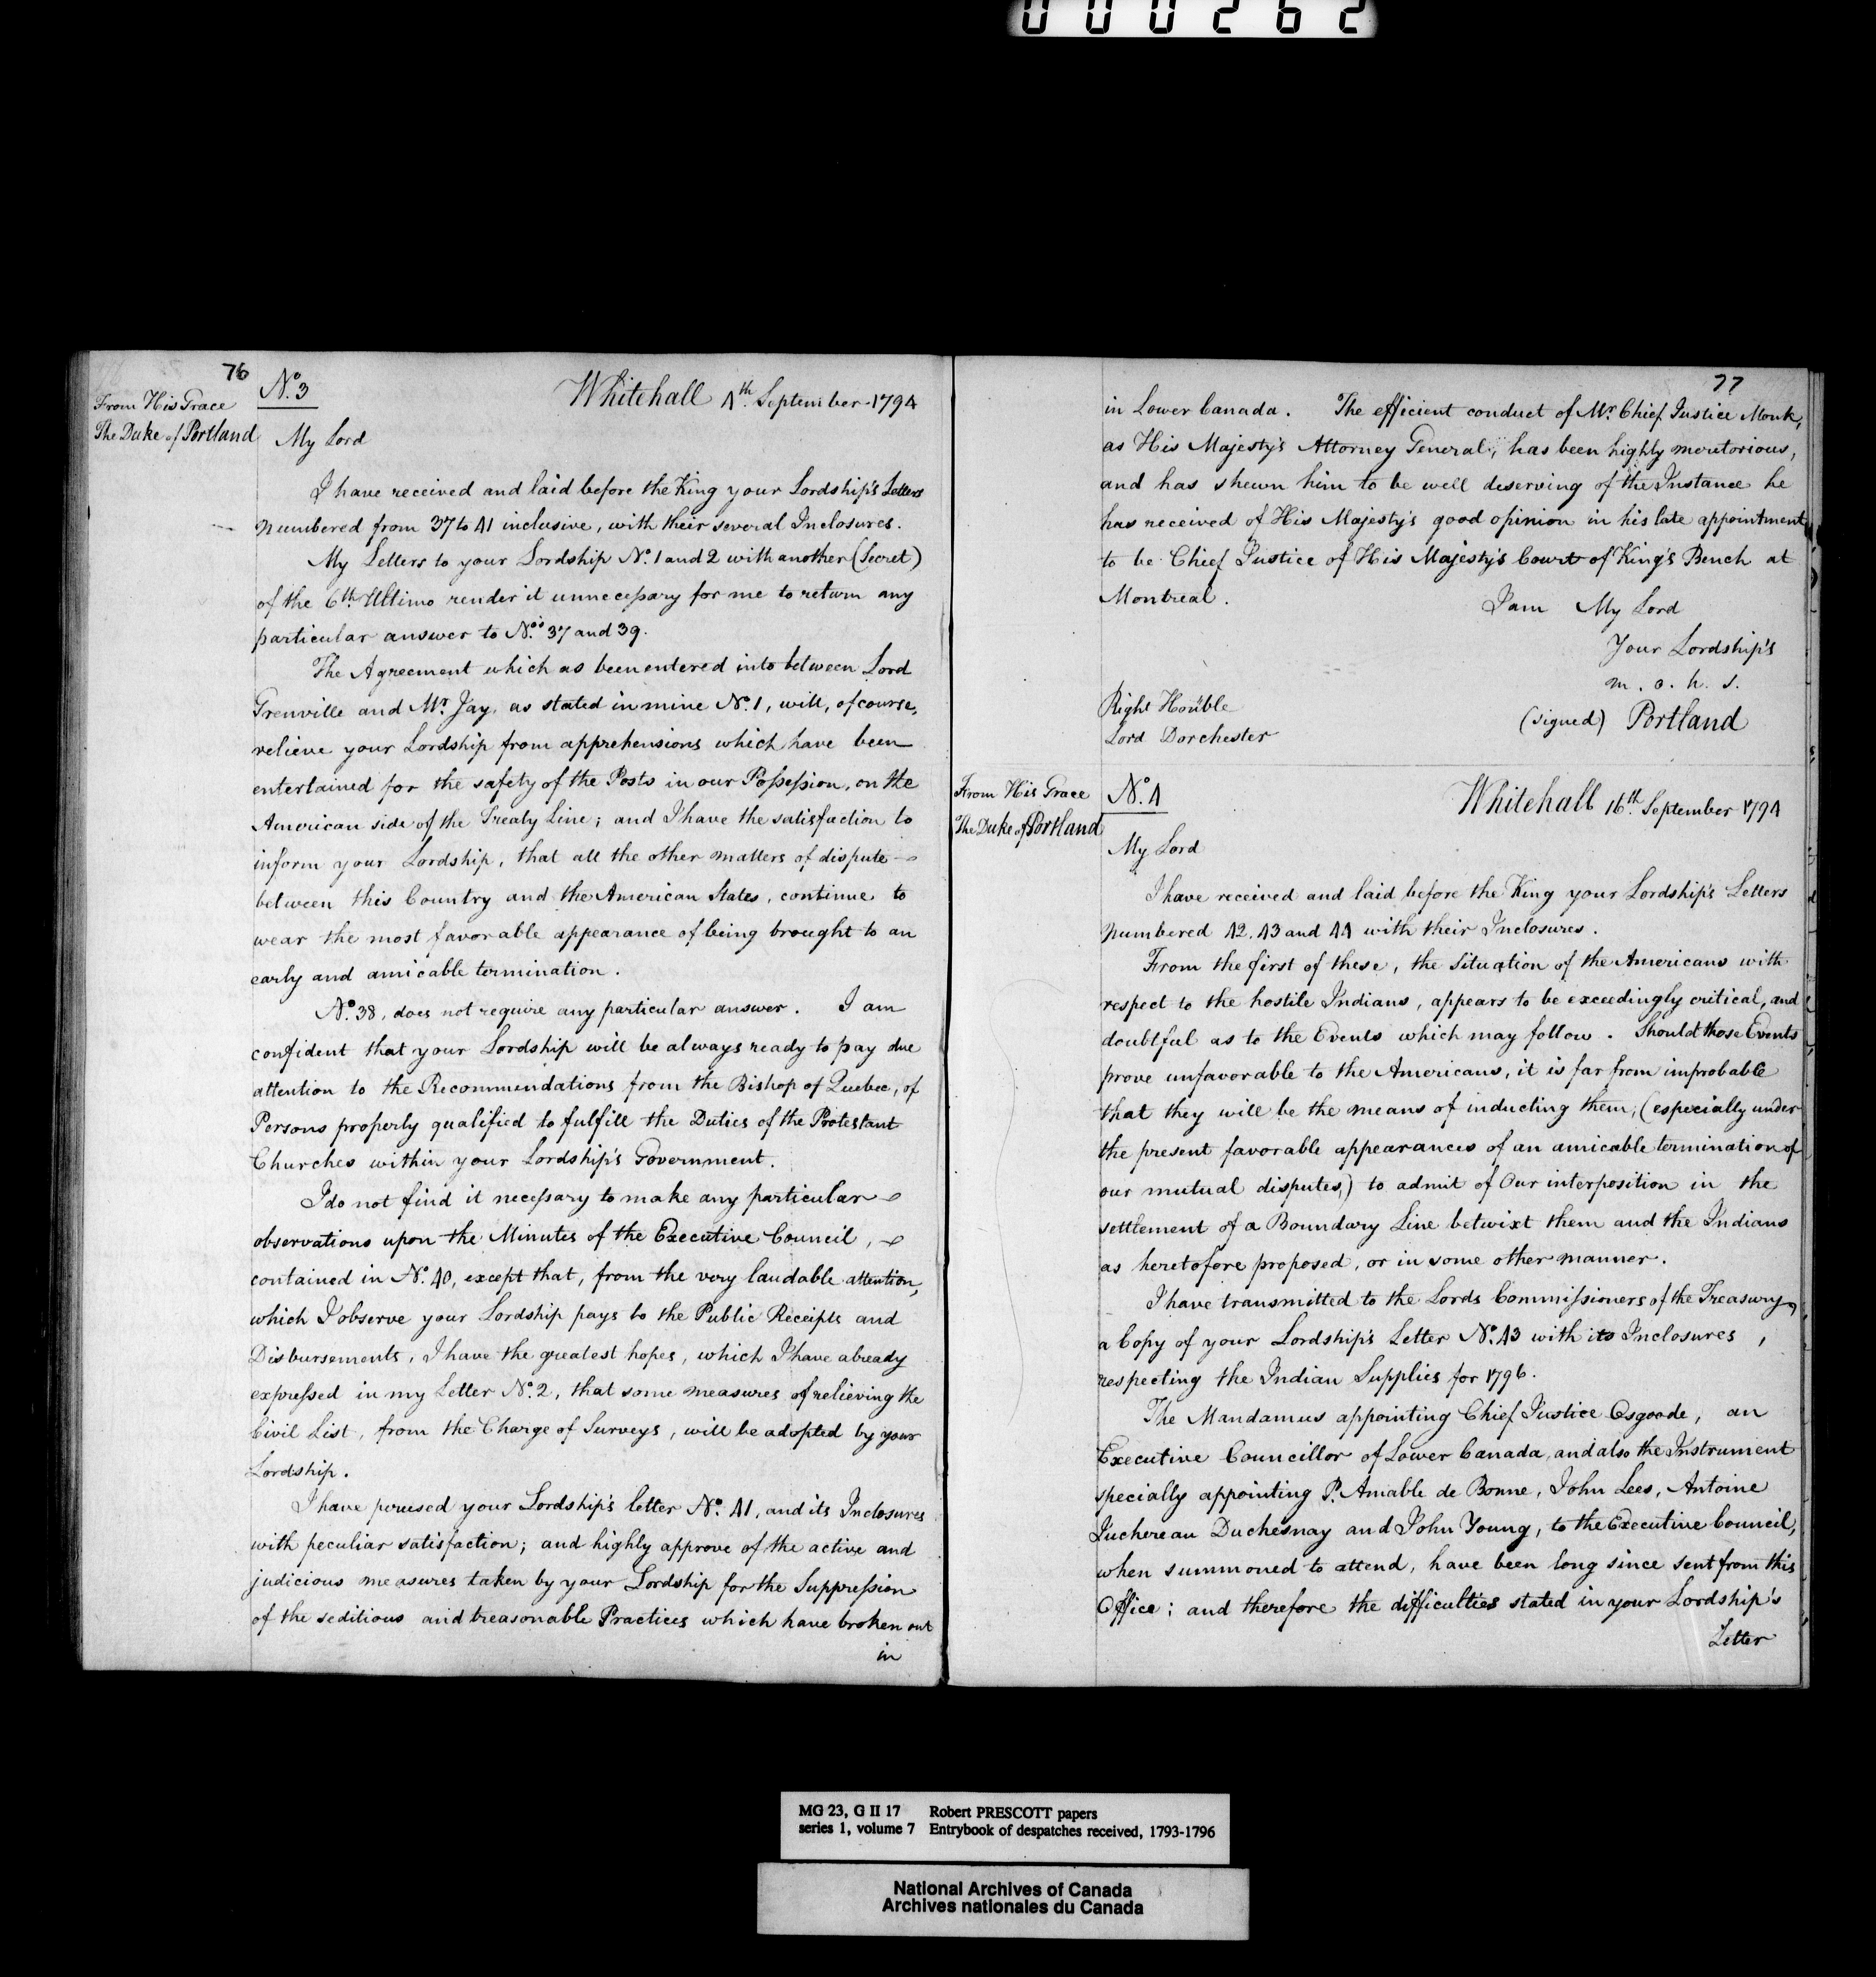 000262
76
From His Grace
The Duke of Portland
No. 3
Whitehall 4th September 1794
My Lord
I have received and laid before the King your Lordship's Letters
numbered from 37 to 41 inclusive, with their several Inclosures.
My Letters to your Lordship No. 1 and 2 with another (Secret)
of the 6th Ultimo render it unnecessary for me to return any
particular answer to Nos. 37 and 39.
The Agreement which as been entered into between Lord
Grenville and Mr. Jay, as stated in mine No. 1, will, of course,
relieve your Lordship from apprehensions which have been
entertained for the safety of the Posts in our Possession, on the
American side of the Treaty Line; and I have the satisfaction to
inform your Lordship, that all the other matters of dispute
between this Country and the American States, continue to
wear the most favorable appearance of being brought to an
early and amicable termination.
No. 38, does not require any particular answer. I am
confident that your Lordship will be always ready to pay due
attention to the Recommendations from the Bishop of Quebec, of
Persons properly qualified to fulfill the Duties of the Protestant
Churches within your Lordship's Government.
I do not find it necessary to make any particular
observations upon the Minutes of the Executive Council,
contained in No. 40, except that, from the very laudable attention,
which I observe your Lordship pays to the Public Receipts and
Disbursements, I have the greatest hopes, which I have already
expressed in my Letter No. 2, that some measures of relieving the
Civil List, from the Charge of Surveys, will be adopted by your
Lordship.
I have perused your Lordship's letter No. 41, and its Inclosures
with peculiar satisfaction; and highly approve of the active and
judicious measures taken by your Lordship for the Suppression
of the seditious and treasonable Practices which have broken out
in
77
in Lower Canada. The efficient conduct of Mr. Chief Justice Monk,
as His Majesty's Attorney General, has been highly meretorious,
and has shewn him to be well deserving of the Instance he
has received of His Majesty's good opinion in his late appointment
to be Chief Justice of His Majesty's Court of King's Bench at
Montreal.
I am My Lord
Your Lordship's
m. o. h. s.
(signed) Portland
Right Honble
Lord Dorchester
From His Grace
The Duke of Portland
No. 4
Whitehall 16th September 1794
My Lord
I have received and laid before the King your Lordship's Letters
numbered 42. 43 and 44 with their Inclosures.
From the first of these, the Situation of the Americans with
respect to the hostile Indians, appears to be exceedingly critical, and
doubtful as to the Events which may follow. Should those Events
prove unfavorable to the Americans, it is far from improbable
that they will be the means of inducting them, (especially under
the present favorable appearances of an amicable termination of
our mutual disputes,) to admit of Our interposition in the
settlement of a Boundary Line betwixt them and the Indians
as heretofore proposed, or in some other manner.
I have transmitted to the Lords Commissioners of the Treasury,
a Copy of your Lordship's Letter No. 43 with its Inclosures,
respecting the Indian Supplies for 1796.
The Mandamus appointing Chief Justice Osgoode, an
Executive Councillor of Lower Canada, and also the Instrument
specially appointing P. Amable de Bonne, John Lees, Antoine
Juchereau Duchesnay and John Young, to the Executive Council,
when summoned to attend, have been long since sent from this
Office; and therefore the difficulties stated in your Lordship's
Letter
MG 23, G II 17 Robert PRESCOTT papers
series 1, volume 7 Entrybook of despatches received, 1793-1796
National Archives of Canada
Archives nationales du Canada